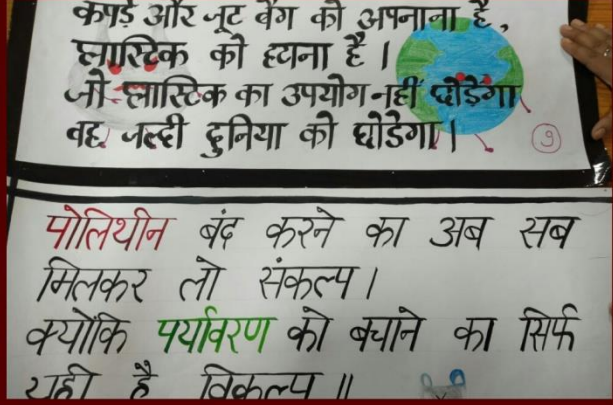 कपड़े और जूट बैग को अपनाना है,
प्लास्टिक को हटाना है ।
जो प्लास्टिक का उपयोग नहीं छोडेंगा
वह जल्दी दुनिया को छोडेगा ।
पोलिथीन बंद करने का अब सब
मिलकर लो संकल्प ।
क्योंकि पर्यावरण को बचाने का सिर्फ
यही है विकल्प ॥